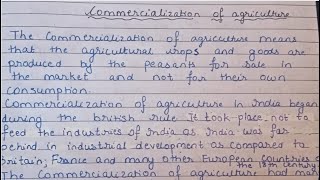 Commercialization of agriculture
The Commercialization of agriculture means
that the agricultural crops and goods are
produced by the peasants for sale in
the market and not for their own
consumption.
Commercialization of agriculture in India began
during the british rule It took place not to
feed the industries of India as India was far
behind in industrial development as compared to
Britain, France and many other European Countries of
the 18th century
The Commercialization of agriculture had man